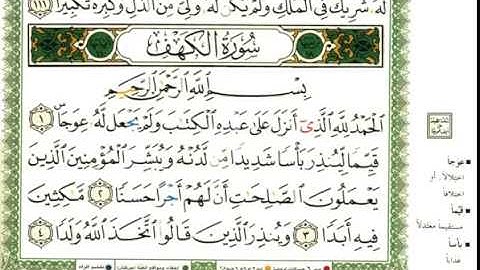 لَّهُۥ شَرِيكٌ فِى ٱلْمُلْكِ وَلَمْ يَكُن لَّهُۥ وَلِىٌّ مِّنَ ٱلذُّلِّ وَكَبِّرْهُ تَكْبِيرًۢا ١١١
سُورَةُ الكَهْفِ
بِسْمِ ٱللَّهِ ٱلرَّحْمَـٰنِ ٱلرَّحِيمِ
ٱلْحَمْدُ لِلَّهِ ٱلَّذِىٓ أَنزَلَ عَلَىٰ عَبْدِهِ ٱلْكِتَـٰبَ وَلَمْ يَجْعَل لَّهُۥ عِوَجَاۜ ١
قَيِّمًا لِّيُنذِرَ بَأْسًا شَدِيدًا مِّن لَّدُنْهُ وَيُبَشِّرَ ٱلْمُؤْمِنِينَ ٱلَّذِينَ
يَعْمَلُونَ ٱلصَّـٰلِحَـٰتِ أَنَّ لَهُمْ أَجْرًا حَسَنًا ٢ مَّـٰكِثِينَ
فِيهِ أَبَدًا ٣ وَيُنذِرَ ٱلَّذِينَ قَالُوا۟ ٱتَّخَذَ ٱللَّهُ وَلَدًا ٤
عوجا
اختلالاً، أو
اختلافاً
قيّما
مستقيماً معتدلاً
بأسا
عذاباً